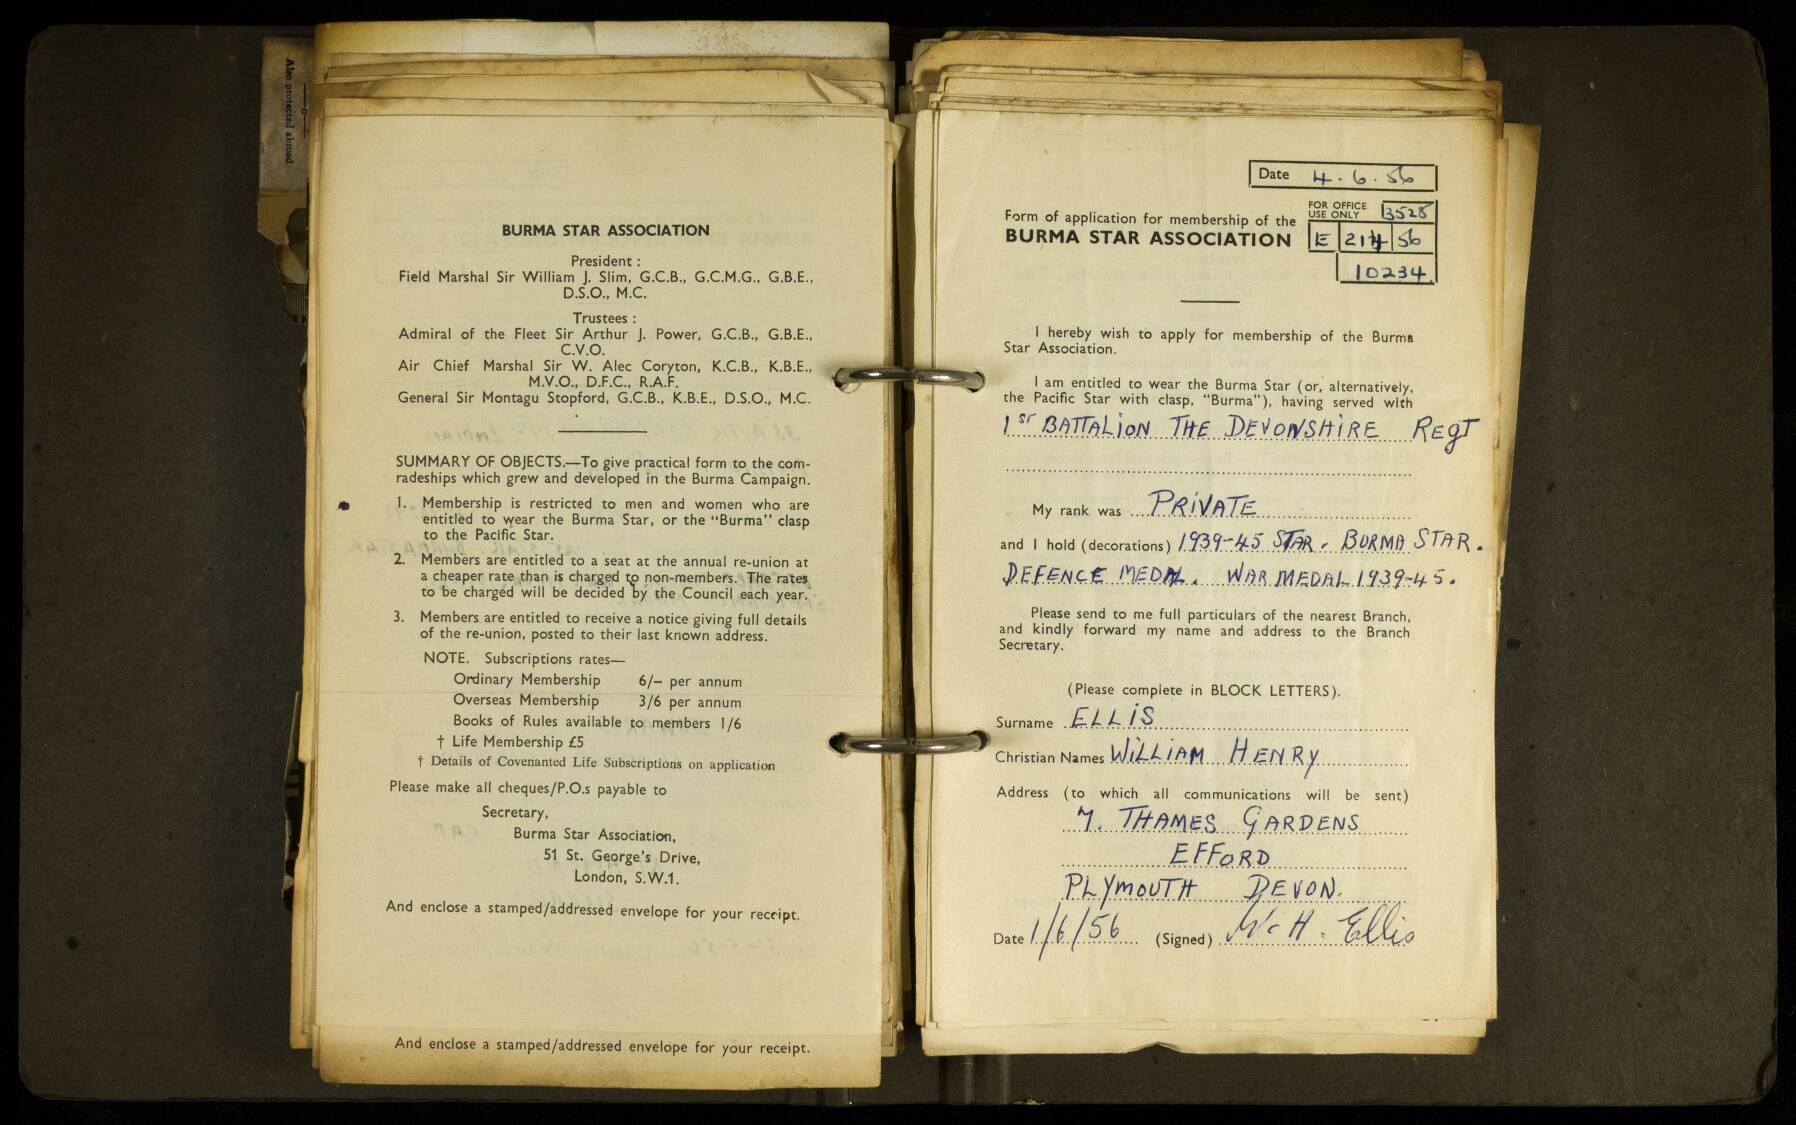 Also protected abroad
BURMA STAR ASSOCIATION
President :
Field Marshal Sir William J. Slim, G.C.B., G.C.M.G., G.B.E.,
D.S.O., M.C.
Trustees :
Admiral of the Fleet Sir Arthur J. Power, G.C.B., G.B.E.,
C.V.O.
Air Chief Marshal Sir W. Alec Coryton, K.C.B., K.B.E.,
M.V.O., D.F.C., R.A.F.
General Sir Montagu Stopford, G.C.B., K.B.E., D.S.O., M.C.
SUMMARY OF OBJECTS.—To give practical form to the com-
radeships which grew and developed in the Burma Campaign.
1. Membership is restricted to men and women who are
entitled to wear the Burma Star, or the "Burma" clasp
to the Pacific Star.
2. Members are entitled to a seat at the annual re-union at
a cheaper rate than is charged to non-members. The rates
to be charged will be decided by the Council each year.
3. Members are entitled to receive a notice giving full details
of the re-union, posted to their last known address.
NOTE. Subscriptions rates—
Ordinary Membership 6/– per annum
Overseas Membership 3/6 per annum
Books of Rules available to members 1/6
† Life Membership £5
† Details of Covenanted Life Subscriptions on application
Please make all cheques/P.O.s payable to
Secretary,
Burma Star Association,
51 St. George's Drive,
London, S.W.1.
And enclose a stamped/addressed envelope for your receipt.
And enclose a stamped/addressed envelope for your receipt.
Date 4.6.56
Form of application for membership of the
BURMA STAR ASSOCIATION
FOR OFFICE
USE ONLY 3528
E 214 56
10234
I hereby wish to apply for membership of the Burma
Star Association.
I am entitled to wear the Burma Star (or, alternatively,
the Pacific Star with clasp, "Burma"), having served with
1ST BATTALION THE DEVONSHIRE REGT
My rank was PRIVATE
and I hold (decorations) 1939-45 STAR. BURMA STAR.
DEFENCE MEDAL. WAR MEDAL 1939-45.
Please send to me full particulars of the nearest Branch,
and kindly forward my name and address to the Branch
Secretary.
(Please complete in BLOCK LETTERS).
Surname ELLIS
Christian Names WILLIAM HENRY
Address (to which all communications will be sent)
7. THAMES GARDENS
EFFORD
PLYMOUTH DEVON.
Date 1/6/56 (Signed) W. H. Ellis